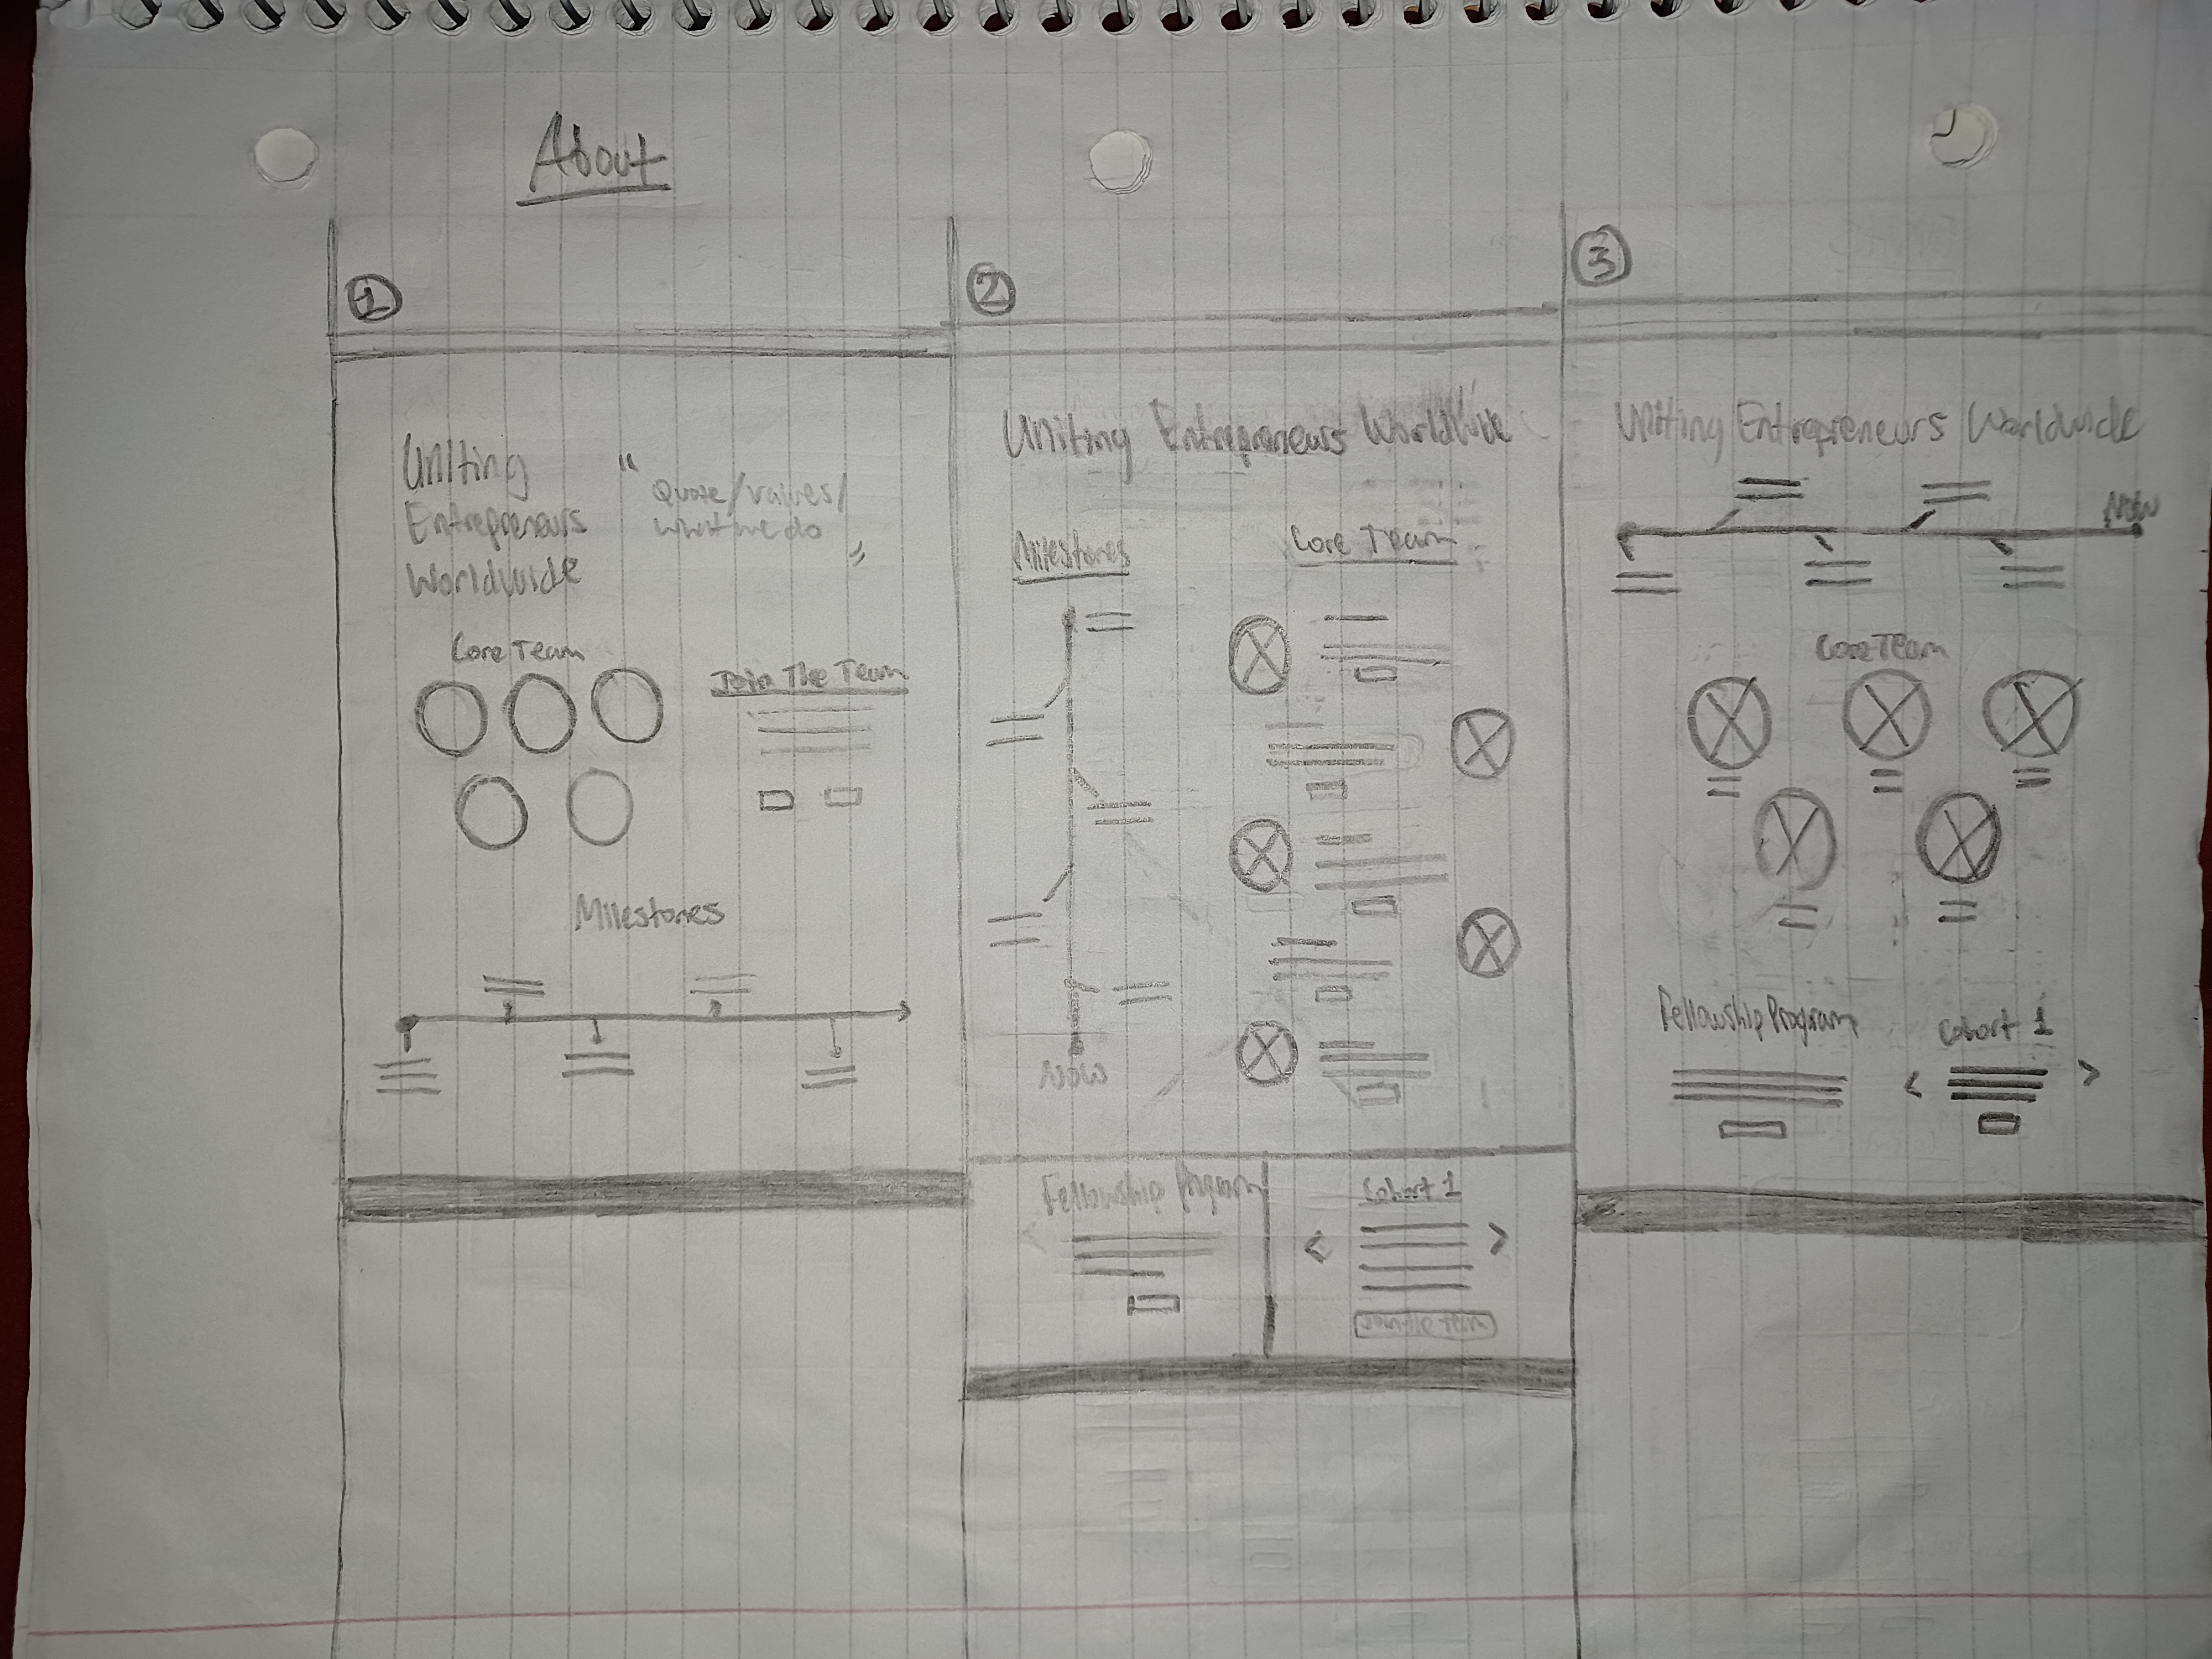 About
1
Uniting
Entrepreneurs
Worldwide
"
Quote/values/
what we do
"
Core Team
Join The Team
Milestones
2
Uniting Entrepreneurs Worldwide
Milestones
Core Team
Now
Fellowship Program
Cohort 1
<
>
Join the Team
3
Uniting Entrepreneurs Worldwide
Now
Core Team
Fellowship Program
Cohort 1
<
>